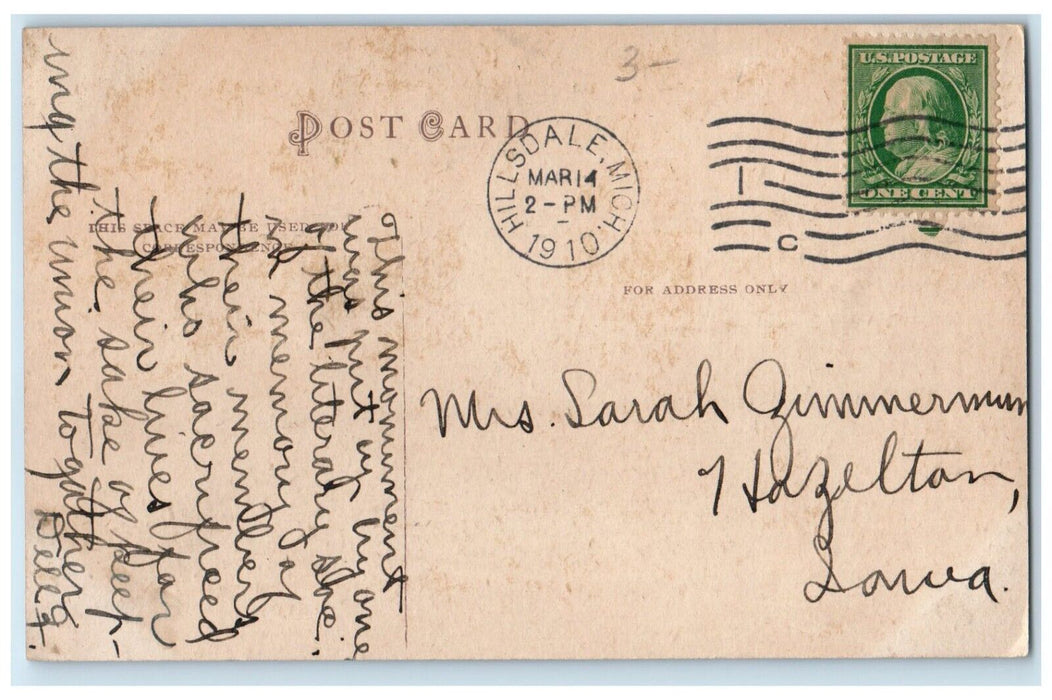 3-
POST CARD
U.S. POSTAGE
ONE CENT
HILLSDALE, MICH.
MAR 14
2-PM
1910
1
C
THIS SPACE MAY BE USED FOR
CORRESPONDENCE
FOR ADDRESS ONLY
This monument
was put up by one
of the literary soc.
in memory of
their members
who sacrificed
their lives for
the sake of keep-
ing the union togather
Mrs. Sarah Zimmerman
Hazelton,
Iowa.